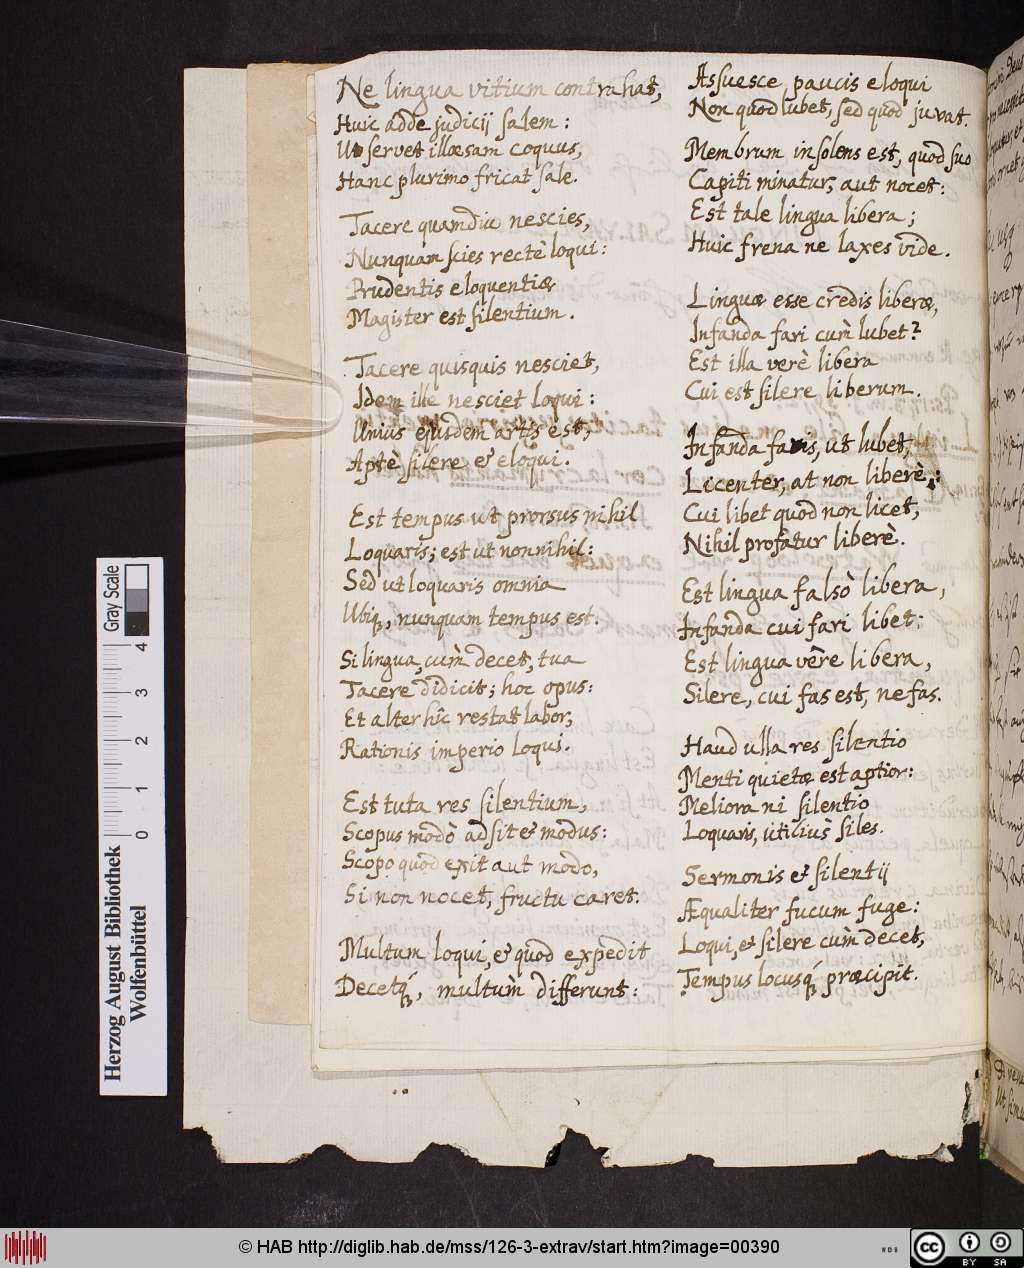 Ne lingua vitium contrahat,
Huic adde judicij salem:
Ut servet illæsam coquus,
Hanc plurimo fricat sale.
Tacere quamdiu nescies,
Nunquam scies rectè loqui:
Prudentis eloquentiæ
Magister est silentium.
Tacere quisquis nesciet,
Idem ille nesciet loqui:
Unius ejusdem artis est,
Aptè silere & eloqui.
Est tempus ut prorsus nihil
Loquaris; est ut nonnihil:
Sed ut loquaris omnia
Ubiq, nunquam tempus est.
Si lingua, cùm decet, tua
Tacere didicit; hoc opus:
Et alter hîc restat labor,
Rationis imperio loqui.
Est tuta res silentium,
Scopus modò adsit & modus:
Scopo quod exit aut modo,
Si non nocet, fructu caret.
Multum loqui, & quod expedit
Decetq́, multùm differunt:
Assuesce paucis eloqui
Non quod lubet, sed quod juvat.
Membrum insolens est, quod suo
Capiti minatur, aut nocet:
Est tale lingua libera;
Huic frena ne laxes vide.
Linguæ esse credis liberæ,
Infanda fari cùm lubet?
Est illa verè libera
Cui est silere liberum.
Infanda faris, ut lubet,
Licenter, at non liberè:
Cui libet quod non licet,
Nihil profatur liberè.
Est lingua falsò libera,
Infanda cui fari libet:
Est lingua vêre libera,
Silere, cui fas est, nefas.
Haud ulla res silentio
Menti quietæ est aptior:
Meliora ni silentio
Loquaris, utiliùs siles.
Sermonis & silentij
Æqualiter fucum fuge:
Loqui, & silere cùm decet,
Tempus locusq́ præcipit.
Herzog August Bibliothek
Wolfenbüttel
Gray Scale
0 1 2 3 4
© HAB http://diglib.hab.de/mss/126-3-extrav/start.htm?image=00390
cc BY SA